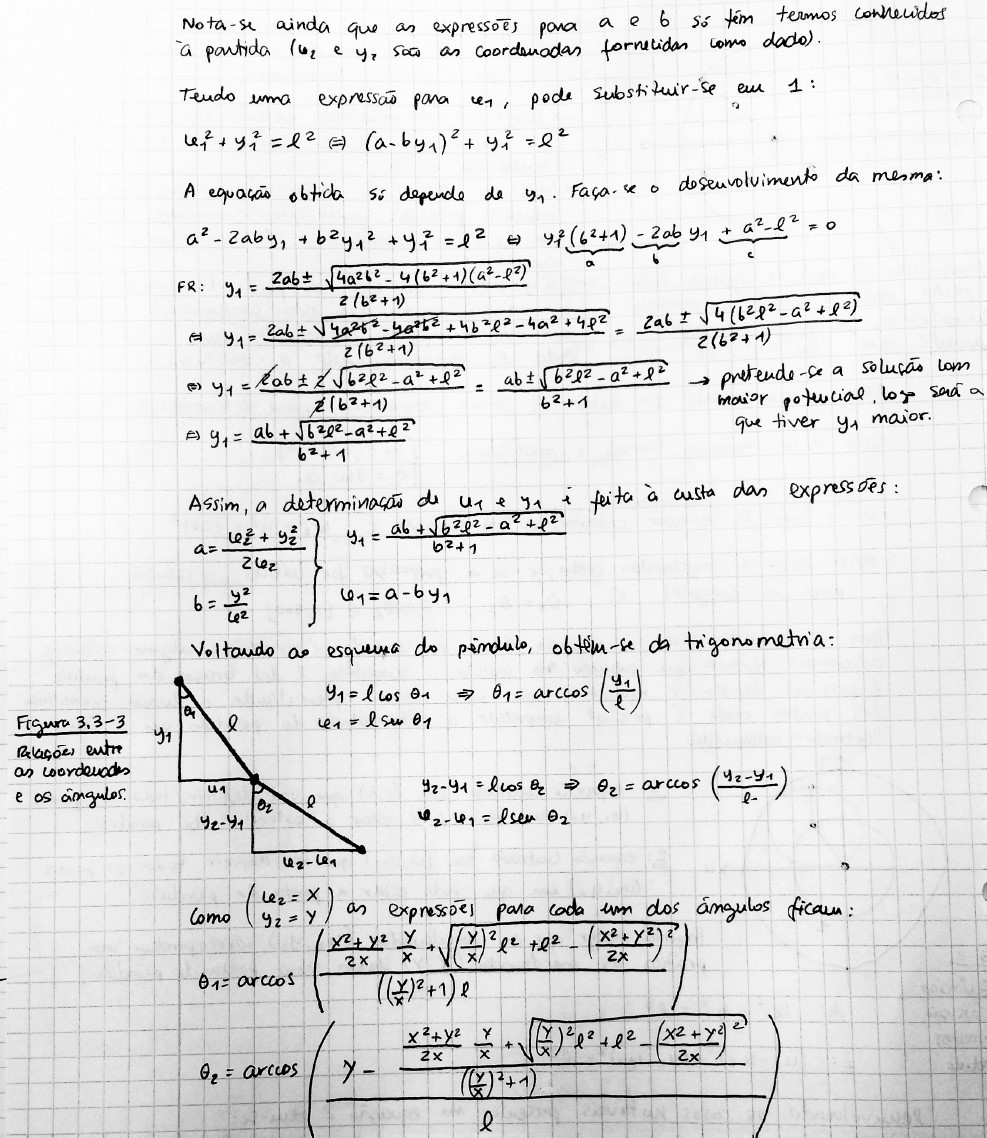 Nota-se ainda que as expressões para a e b só têm termos conhecidos
à partida (x₂ e y₂ são as coordenadas fornecidas como dado).
Tendo uma expressão para x₁, pode substituir-se em 1:
x₁² + y₁² = l² ⇔ (a - by₁)² + y₁² = l²
A equação obtida só depende de y₁. Faça-se o desenvolvimento da mesma:
a² - 2aby₁ + b²y₁² + y₁² = l² ⇔ y₁²(b²+1) - 2ab y₁ + a² - l² = 0
a b c
FR: y₁ = (2ab ± √(4a²b² - 4(b²+1)(a²-l²))) / (2(b²+1))
⇔ y₁ = (2ab ± √(4a²b² - 4a²b² + 4b²l² - 4a² + 4l²)) / (2(b²+1)) = (2ab ± √(4(b²l² - a² + l²))) / (2(b²+1))
⇔ y₁ = (2ab ± 2√(b²l² - a² + l²)) / (2(b²+1)) = (ab ± √(b²l² - a² + l²)) / (b²+1) → pretende-se a solução com
maior potencial, logo será a
que tiver y₁ maior.
⇔ y₁ = (ab + √(b²l² - a² + l²)) / (b²+1)
Assim, a determinação de x₁ e y₁ é feita à custa das expressões:
a = (x₂² + y₂²) / (2x₂) } y₁ = (ab + √(b²l² - a² + l²)) / (b²+1)
b = y²/x² } x₁ = a - by₁
Voltando ao esquema do pêndulo, obtêm-se da trigonometria:
y₁ = l cos θ₁ ⇒ θ₁ = arccos (y₁/l)
x₁ = l sen θ₁
Figura 3.3-3
Relações entre
as coordenadas
e os ângulos.
θ₁
l
y₁
x₁
θ₂
l
y₂-y₁
x₂-x₁
y₂-y₁ = l cos θ₂ ⇒ θ₂ = arccos ((y₂-y₁)/l)
x₂-x₁ = l sen θ₂
Como (x₂ = X, y₂ = Y) as expressões para cada um dos ângulos ficam:
θ₁ = arccos (((X²+Y²)/(2X) Y/X + √((Y/X)² l² + l² - ((X²+Y²)/(2X))²)) / (((Y/X)²+1) l))
θ₂ = arccos ((Y - ((X²+Y²)/(2X) Y/X + √((Y/X)² l² + l² - ((X²+Y²)/(2X))²)) / ((Y/X)²+1)) / l)